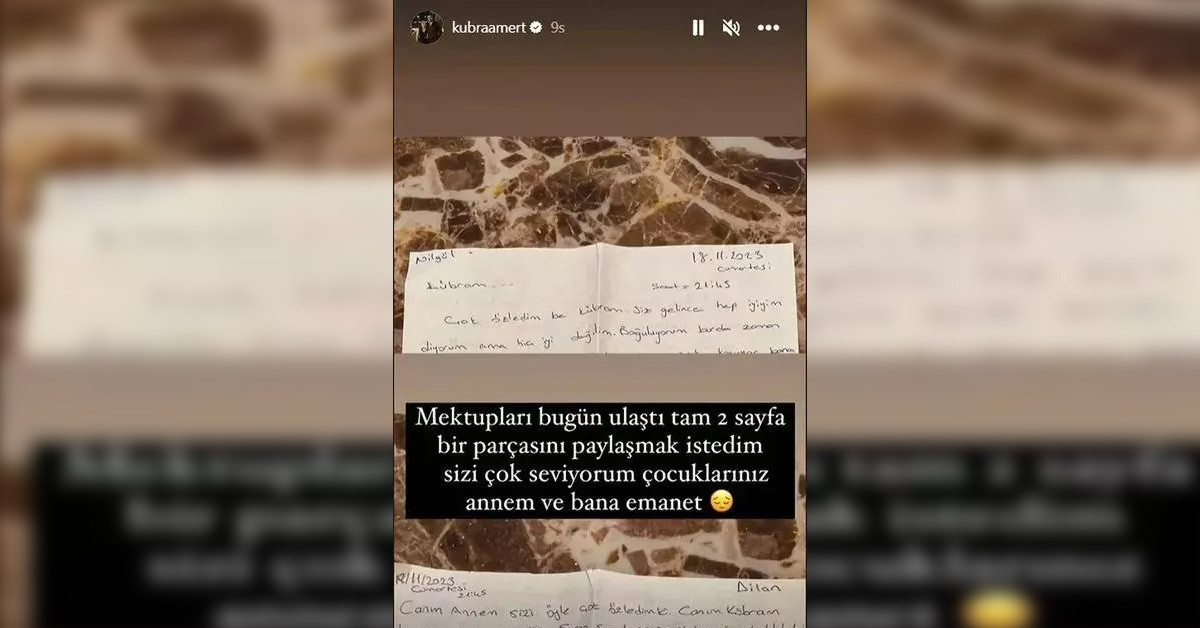 kubraamert 9s
Nilgül
18.11.2023
Cumartesi
Kübram...
Saat = 21:45
Çok özledim be Kübram siz gelince hep iyiyim
diyorum ama hiç iyi değilim. Boğuluyorum burda zaman
bana
Mektupları bugün ulaştı tam 2 sayfa
bir parçasını paylaşmak istedim
sizi çok seviyorum çocuklarınız
annem ve bana emanet 😔
18/11/2023
Cumartesi
21:45
Dilan
Canım Annem sizi öyle çok özledimki. Canım Kübram